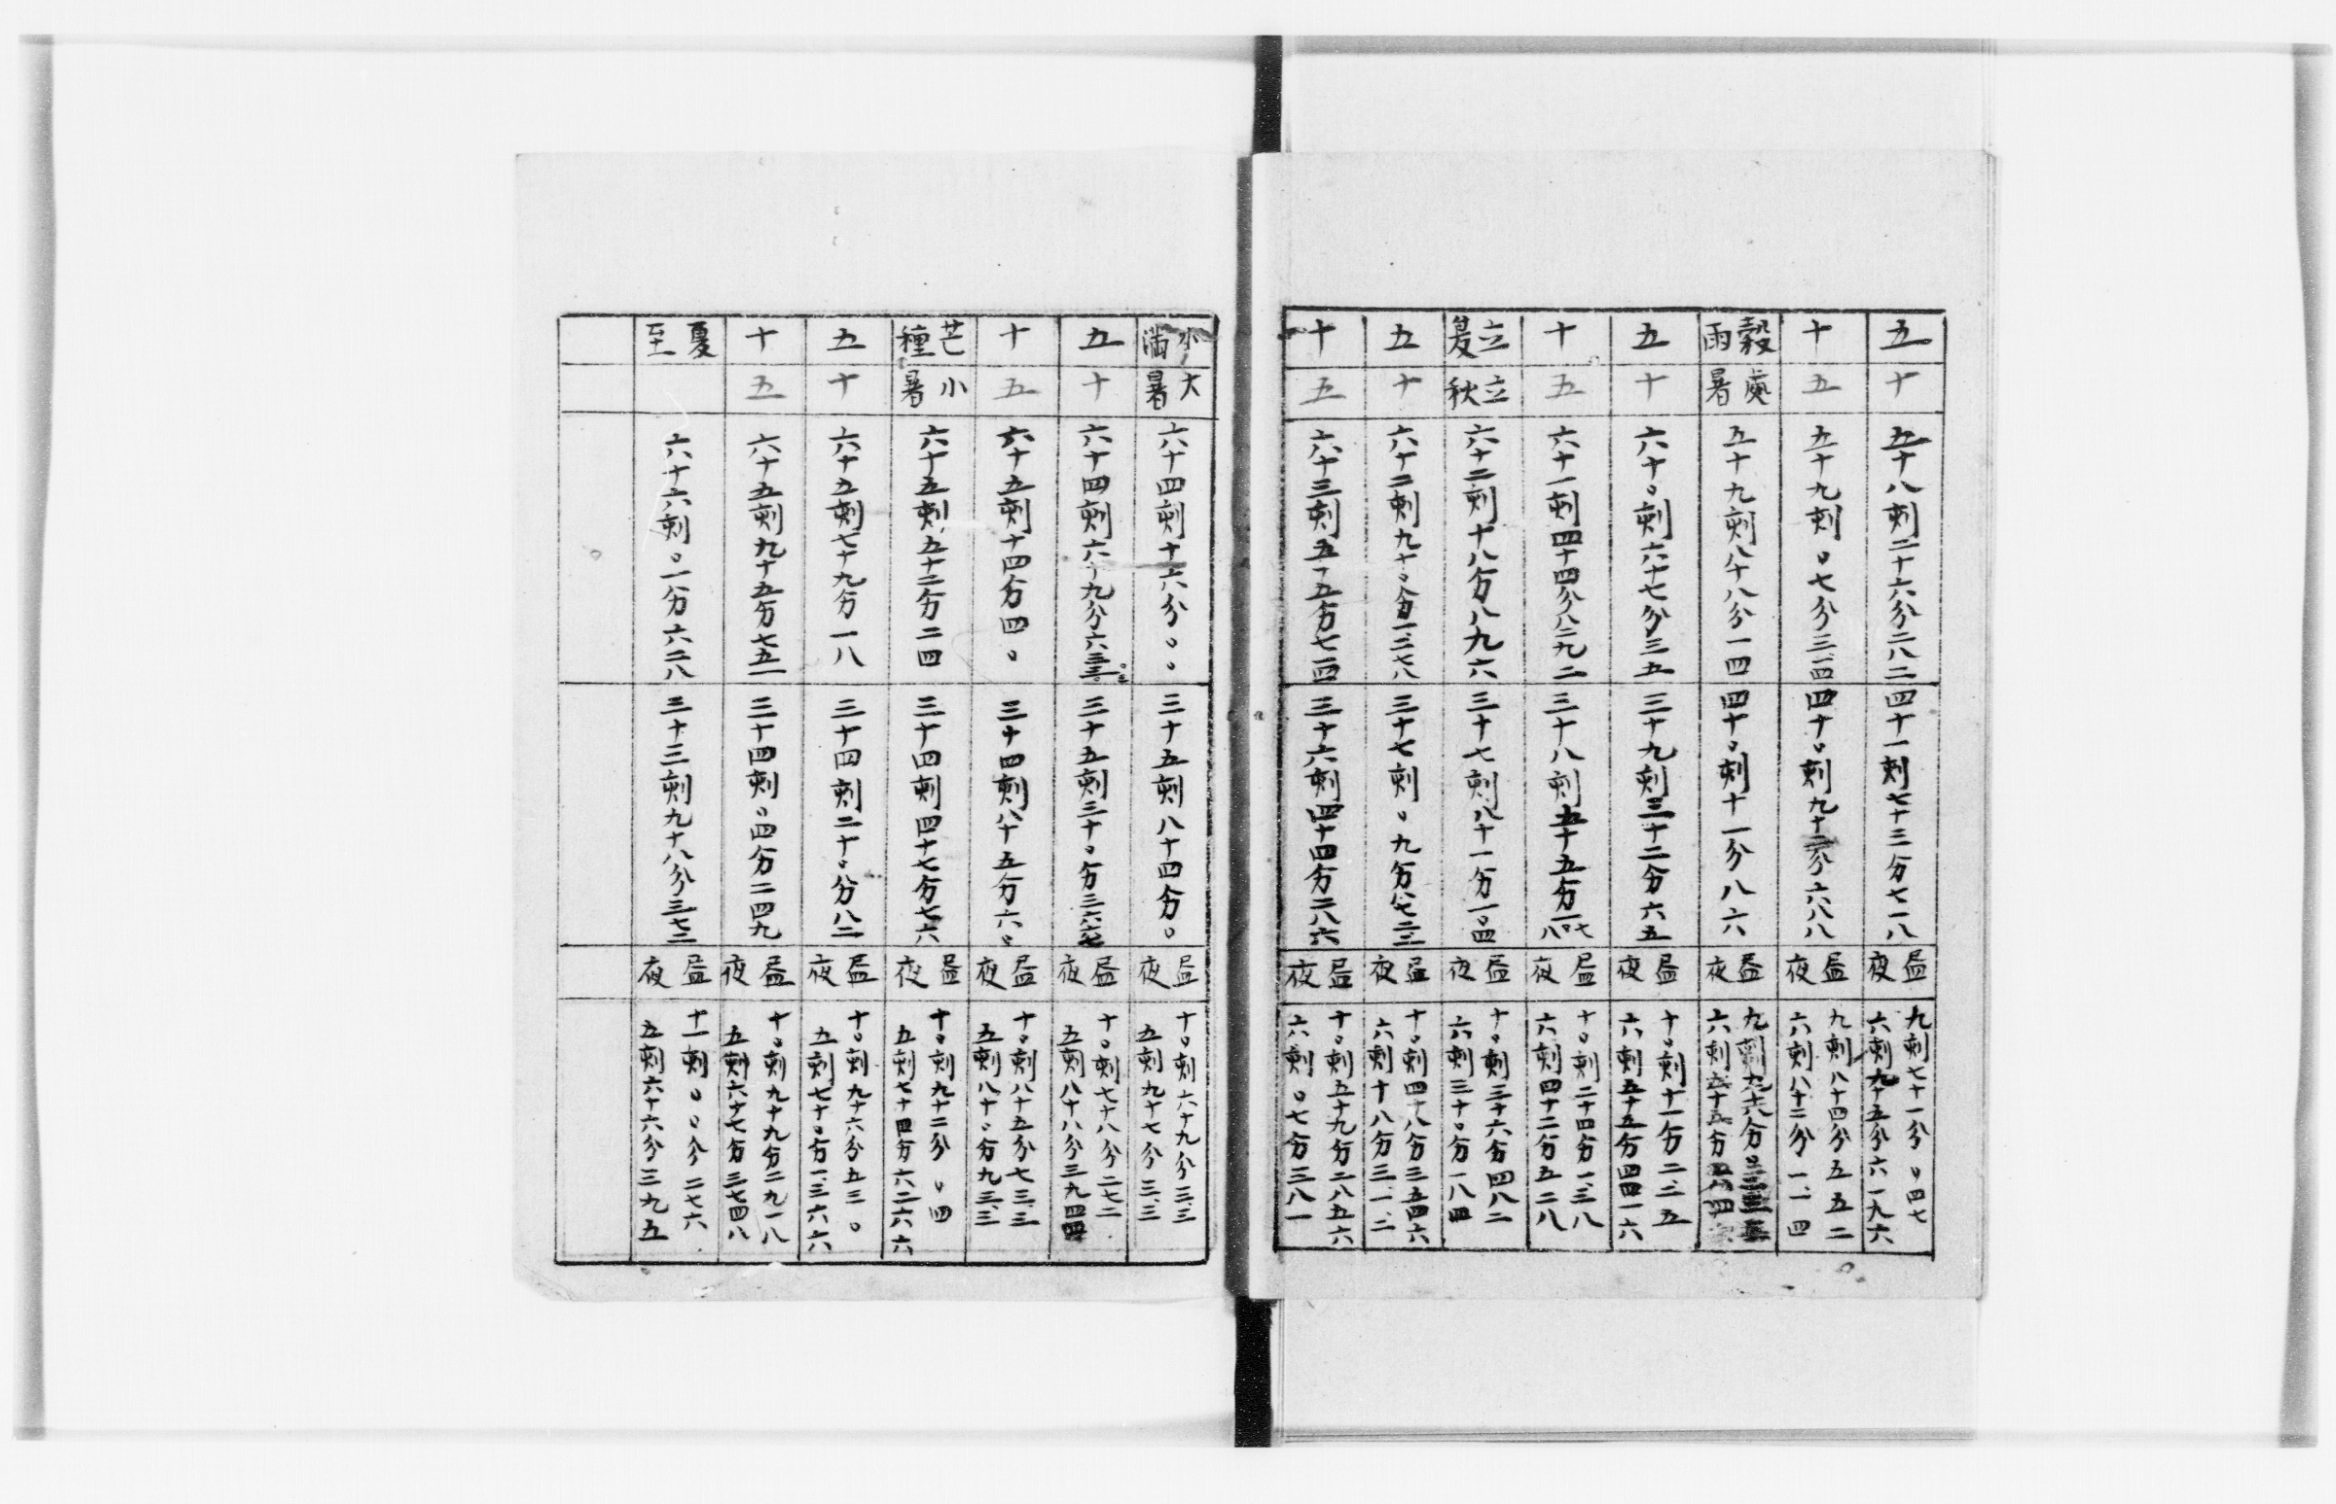 五
十
五十八刻二十六分二八二
四十一刻七十三分七一八
昼夜
九刻七十一分〇四七
六刻九十五分六一九六
十
五
五十九刻〇七分三一四
四十〇刻九十二分六八八
昼夜
九刻八十四分五五二
六刻八十二分一一四
穀雨
處暑
五十九刻八十八分一四
四十〇刻十一分八六
昼夜
九刻九十八分〇
六刻六十八分
五
十
六十〇刻六十七分三五
三十九刻三十二分六五
昼夜
十〇刻十一分二二五
六刻五十五分四四一六
十
五
六十一刻四十四分八二九二
三十八刻五十五分一七〇八
昼夜
十〇刻二十四分一三八
六刻四十二分五二八
立夏
立秋
六十二刻十八分八九六
三十七刻八十一分一〇四
昼夜
十〇刻三十六分四八二
六刻三十〇分一八四
五
十
六十二刻九十〇分一二七八
三十七刻〇九分八七二二
昼夜
十〇刻四十八分三五四六
六刻十八分三一二
十
五
六十三刻五十五分七一四
三十六刻四十四分二八六
昼夜
十〇刻五十九分二八五六
六刻〇七分三八一
小滿
大暑
六十四刻十六分〇〇
三十五刻八十四分〇
昼夜
十〇刻六十九分三三三
五刻九十七分三三三
五
十
六十四刻六十九分六三三
三十五刻三十〇分三六六七
昼夜
十〇刻七十八分二七二
五刻八十八分三九四四
十
五
六十五刻十四分四〇
三十四刻八十五分六〇
昼夜
十〇刻八十五分七三三
五刻八十〇分九三三
芒種
小暑
六十五刻五十二分二四
三十四刻四十七分七六
昼夜
十〇刻九十二分〇四
五刻七十四分六二六六
五
十
六十五刻七十九分一八
三十四刻二十〇分八二
昼夜
十〇刻九十六分五三〇
五刻七十〇分一三六六
十
五
六十五刻九十五分七五一
三十四刻〇四分二四九
昼夜
十〇刻九十九分二九一八
五刻六十七分三七四八
夏至
六十六刻〇一分六二八
三十三刻九十八分三七二
昼夜
十一刻〇〇分二七六
五刻六十六分三九五